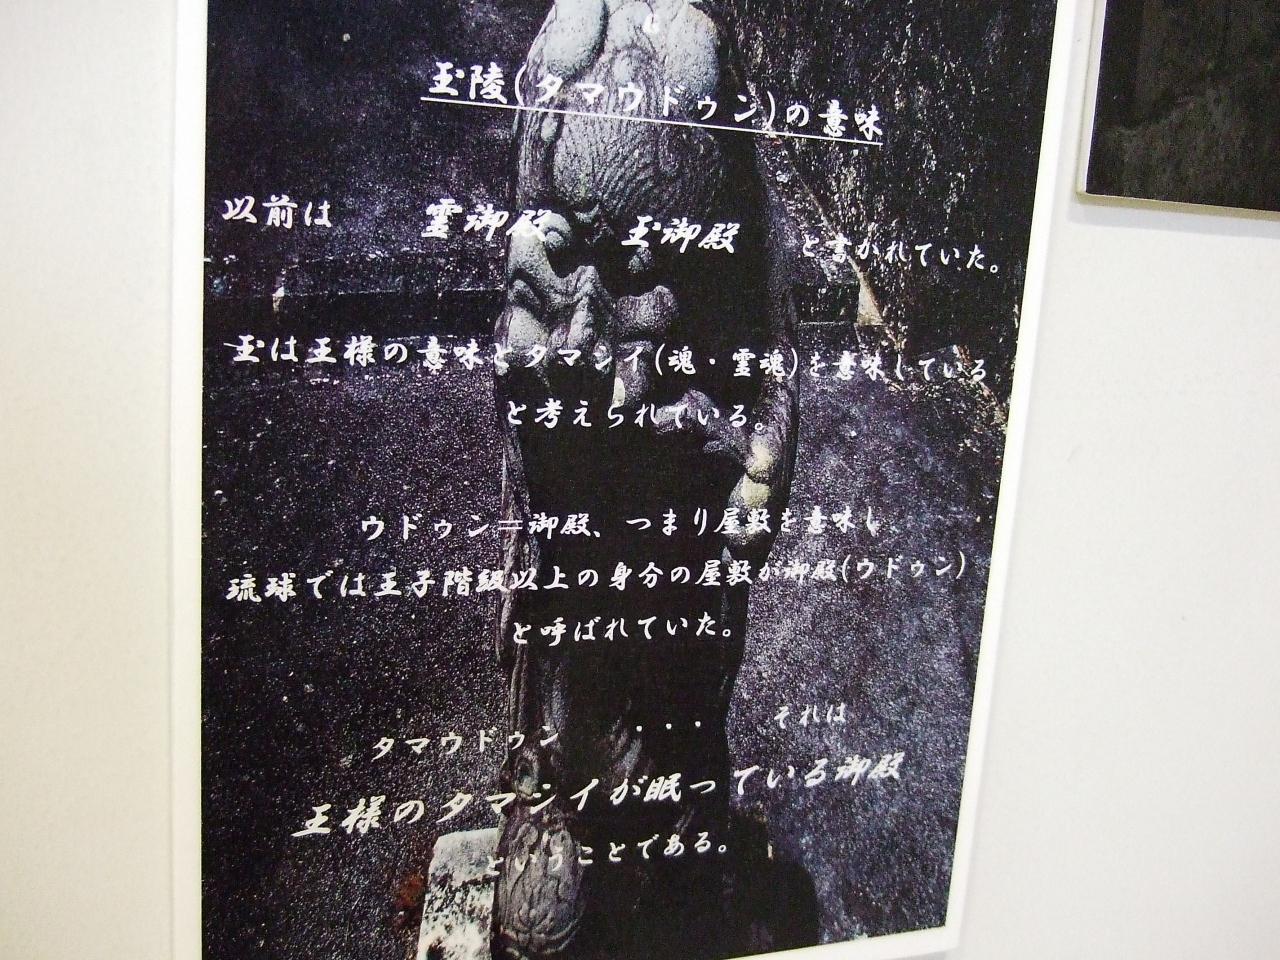 玉陵(タマウドゥン)の意味
以前は 霊御殿 玉御殿 と書かれていた。
玉は王様の意味とタマシイ(魂・霊魂)を意味している
と考えられている。
ウドゥン=御殿、つまり屋敷を意味し
琉球では王子階級以上の身分の屋敷が御殿(ウドゥン)
と呼ばれていた。
タマウドゥン ・・・ それは
王様のタマシイが眠っている御殿
ということである。